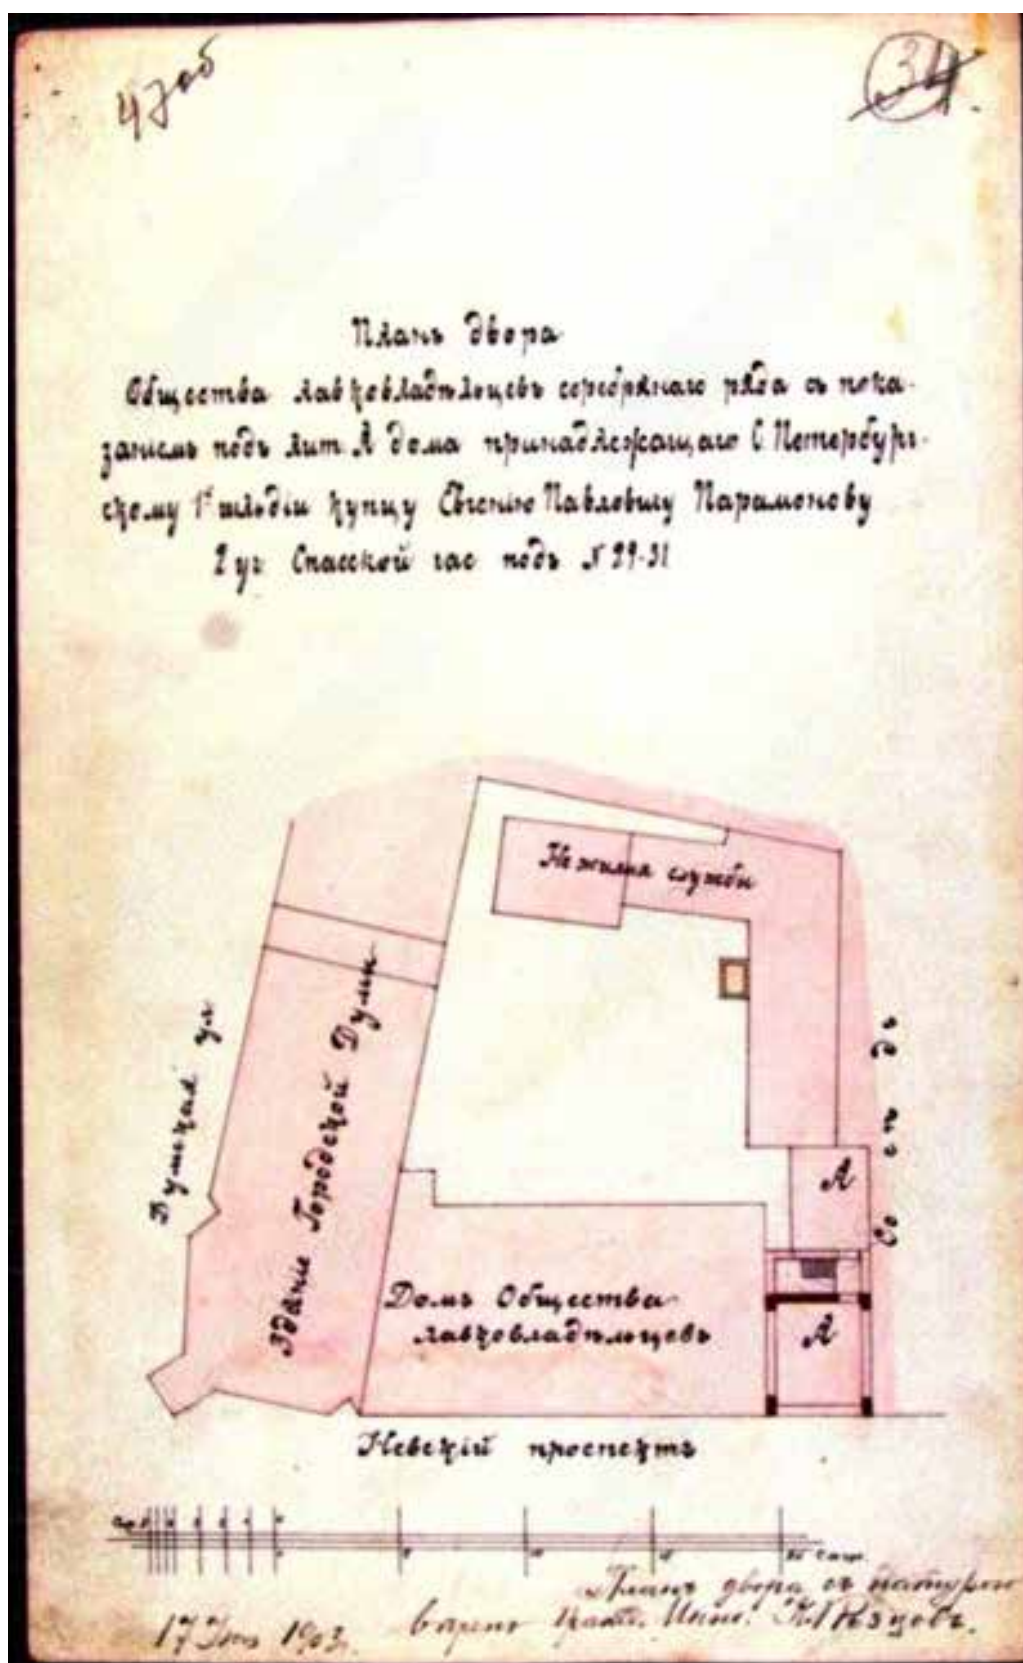 47об
34.
Планъ двора
Общества лавковладѣльцевъ серебрянаго ряда съ пока-
заніемъ подъ лит. А дома принадлежащаго С Петербург-
скому 1й гильдіи купцу Евгенію Павловичу Парамонову
2 уч Спасской час подъ № 29-31
Не жилыя службы
Думская ул
Зданіе Городской Думы
Со сѣ дъ
А
А
Домъ Общества
лавковладѣльцевъ
Невскій проспектъ
Саж.
Планъ двора съ натурою
17 1903. вѣрень